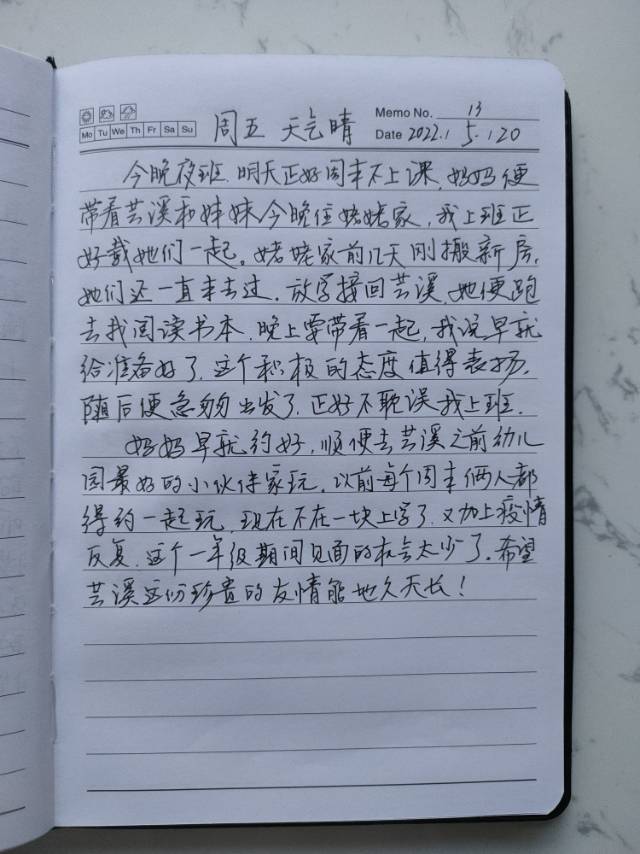 Memo No. 13
Mo Tu We Th Fr Sa Su
周五 天气晴
Date 2022.1 5.120
今晚夜班.明天正好周末不上课,妈妈便
带着芸溪和妹妹今晚住姥姥家,我上班正
好载她们一起。姥姥家前几天刚搬新房,
她们还一直未去过.放学接回芸溪,她便跑
去找阅读书本.晚上要带着一起,我说早就
给准备好了.这个积极的态度值得表扬.
随后便急匆匆出发了.正好不耽误我上班.
妈妈早就约好,顺便去芸溪之前幼儿
园最好的小伙伴家玩.以前每个周末俩人都
得约一起玩.现在不在一块上学了.又加上疫情
反复.这个一年级期间见面的机会太少了.希望
芸溪这份珍贵的友情能地久天长!